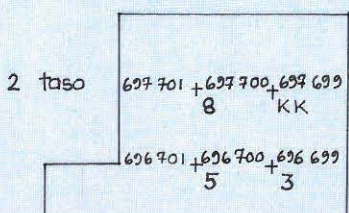 2 taso 697 701 + 697 700 + 697 699
8 KK
696 701 + 696 700 + 696 699
5 3